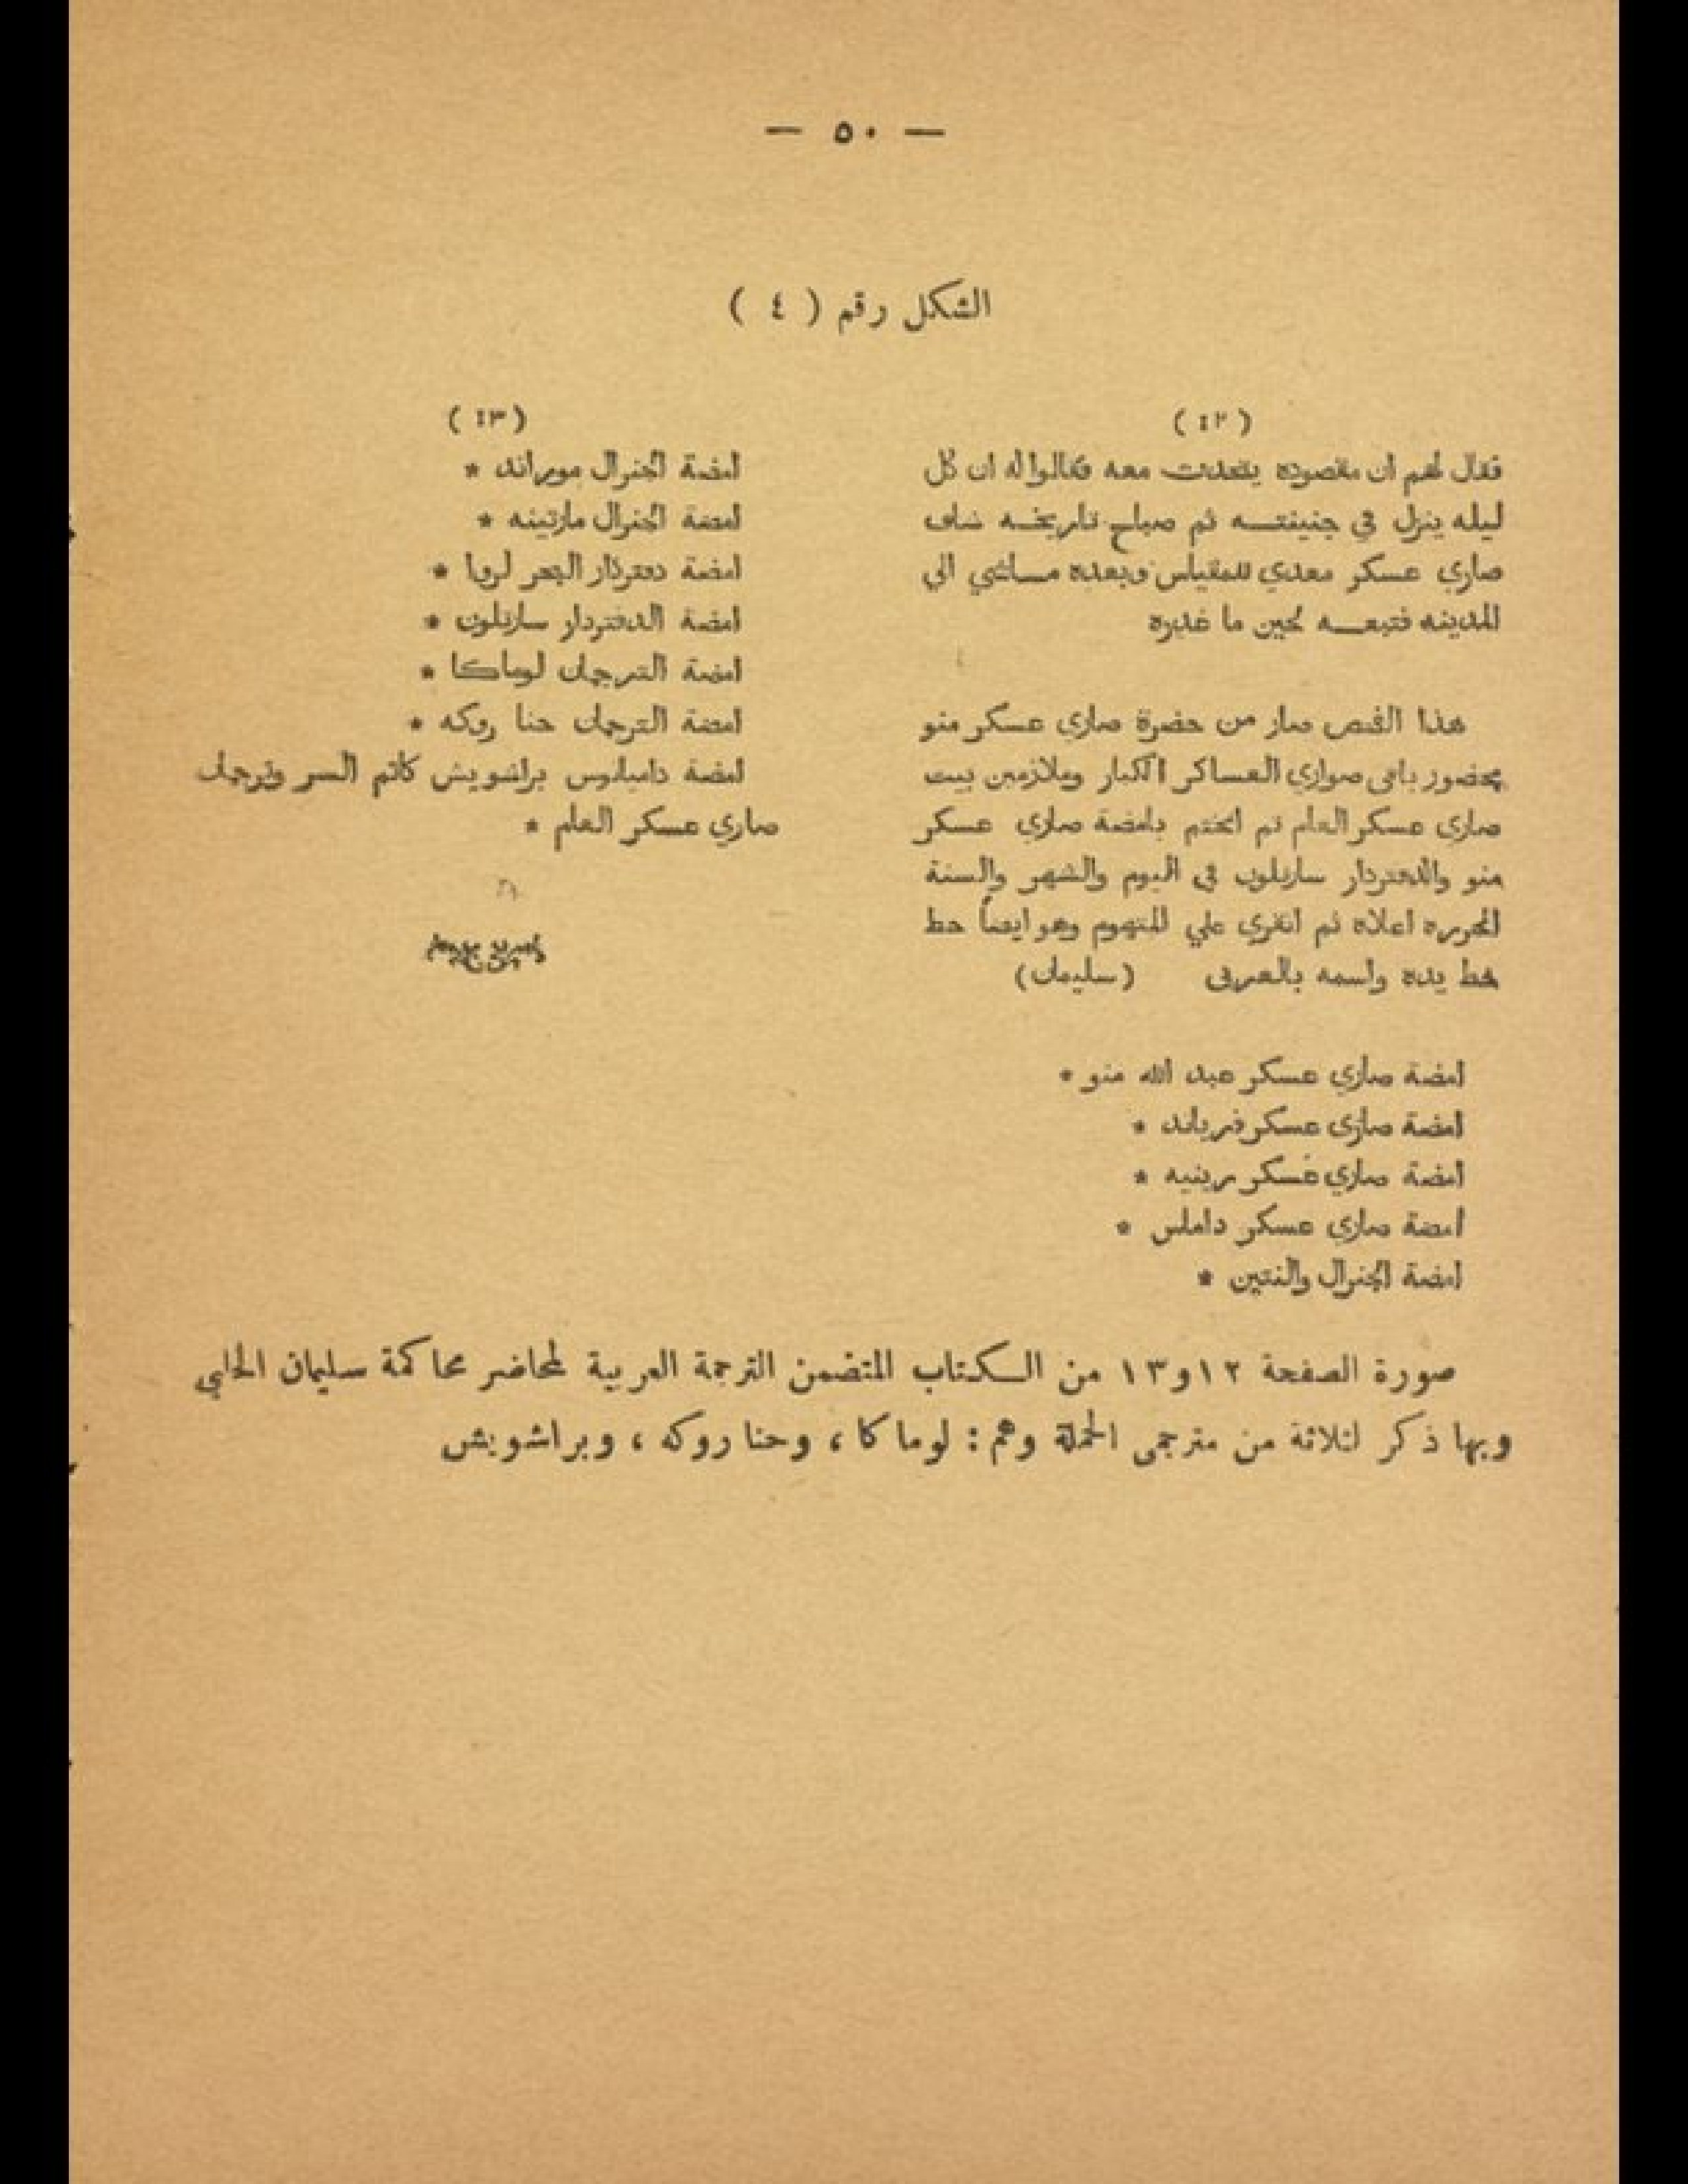 — ٥٠ —
الشكل رقم ( ٤ )
( ١٢ )
فقال لهم ان مقصوده يتحدت معه فقالوا له ان كل
ليله ينزل في جنينتـه ثم صباح تاريخـه شاف
صاري عسكر معدي للمقياس وبعده مـاشي الي
المدينه فتبعـه لحين ما غدره
هذا الفحص صار من حضرة صاري عسكر منو
بحضور باقى صواري العساكر الكبار وملازمين بيت
صاري عسكر العام ثم انختم بامضة صاري عسكر
منو والدفتردار سارتلون في اليوم والشهر والسنة
المحرره اعلاه ثم انقري علي المتهوم وهو ايضاً حط
خط يده واسمه بالعربى (سليمان)
امضة صاري عسكر عبد الله منو *
امضة صارى عسكر فرياند *
امضة صاري عسكر رينيه *
امضة صاري عسكر داماس *
امضة الجنرال والنتين *
( ١٣ )
امضة الجنرال موراند *
امضة الجنرال مارتينه *
امضة دفتردار البحر لروا *
امضة الدفتردار سارتلون *
امضة الترجمان لوماكا *
امضة الترجمان حنا روكه *
امضة داميانوس براشويش كاتم السر وترجمان
صاري عسكر العام *
صورة الصفحة ١٢و١٣ من الكتاب المتضمن الترجمة العربية لمحاضر محاكمة سليمان الحلبي
وبها ذكر لثلاثة من مترجمى الحملة وهم : لوماكا ، وحنا روكه ، وبراشويش